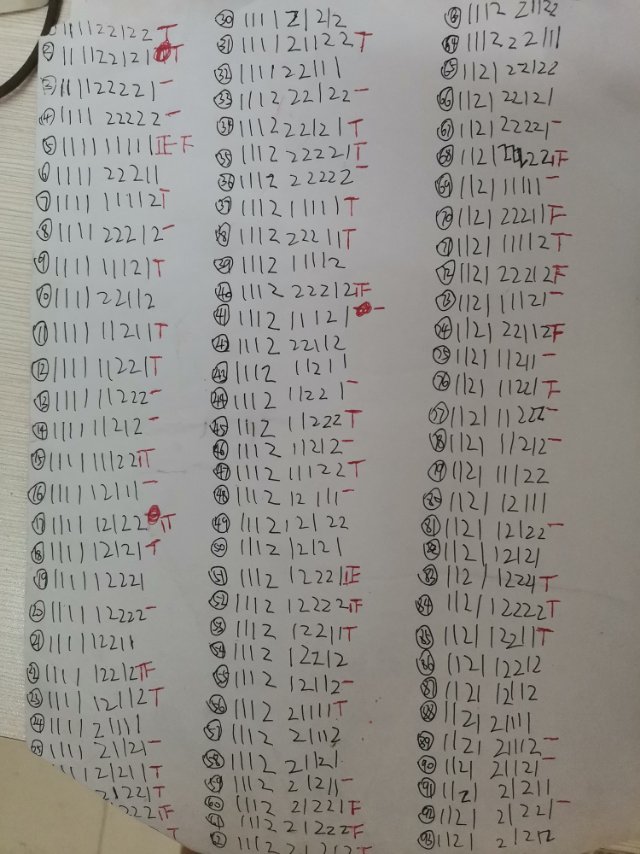 1111 22122 T
② 1111 22121 T
③ 1111 22221 一
④ 1111 22222 一
⑤ 1111 11111 正下
⑥ 1111 22211
⑦ 1111 11112 T
⑧ 1111 22212 一
⑨ 1111 11121 T
⑩ 1111 22112
⑪ 1111 11211 T
⑫ 1111 11221 T
⑬ 1111 11222 一
⑭ 1111 11212 一
⑮ 1111 11122 正
⑯ 1111 12111 一
⑰ 1111 12122 正
⑱ 1111 12121 T
⑲ 1111 12221
⑳ 1111 12222 一
㉑ 1111 12211
㉒ 1111 12212 正
㉓ 1111 12112 T
㉔ 1111 21111
㉕ 1111 21121 一
21211 T
21221 T
222 正
T
㉚ 1111 21212
㉛ 1111 21122 T
㉜ 1111 22111
㉝ 1112 22122 一
㉞ 1112 22121 T
㉟ 1112 22221 T
㊱ 1112 22222 一
㊲ 1112 11111 T
㊳ 1112 22211 T
㊴ 1112 11112
㊵ 1112 22212 正
㊶ 1112 11121 一
㊷ 1112 22112
㊸ 1112 11211
㊹ 1112 11221 一
㊺ 1112 11222 T
㊻ 1112 11212 一
㊼ 1112 11122 T
㊽ 1112 12111 一
㊾ 1112 12122
㊿ 1112 12121
51 1112 12221 正
52 1112 12222 正
53 1112 12211 T
54 1112 12212
55 1112 12112 一
56 1112 21111 T
57 1112 21112
58 1112 21121
59 1112 21211 一
60 1112 21221 正
61 1112 21222 正
62 1112 21212 T
63 1112 21122
64 1112 22111
65 1121 22122
66 1121 22121
67 1121 22221 一
68 1121 22222 正
69 1121 11111 一
70 1121 22211 正
71 1121 11112 T
72 1121 22212 正
73 1121 11121 一
74 1121 22112 正
75 1121 11211 一
76 1121 11221 T
77 1121 11222 一
78 1121 11212 一
79 1121 11122
80 1121 12111
81 1121 12122 一
82 1121 12121
83 1121 12221 T
84 1121 12222 T
85 1121 12211 T
86 1121 12212
87 1121 12112
88 1121 21111
89 1121 21112 一
90 1121 21121 一
91 1121 21211
92 1121 21221 一
93 1121 21212